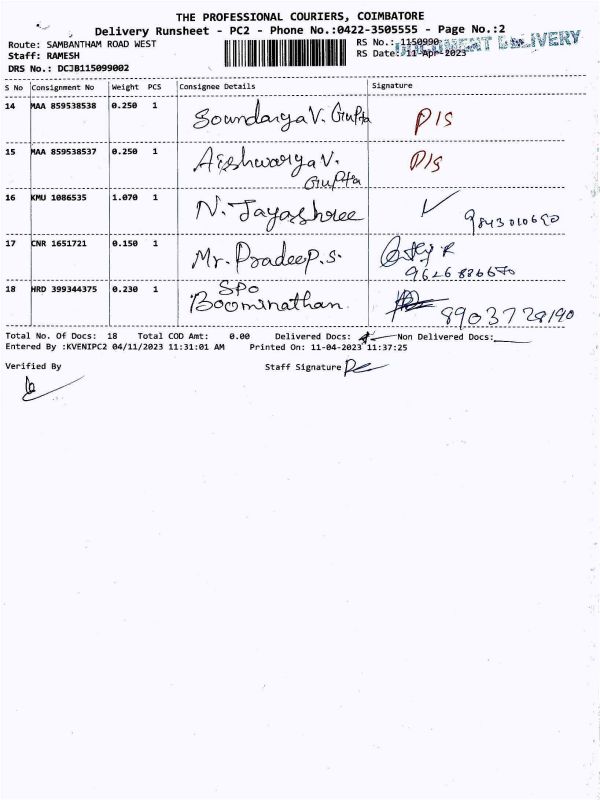 THE PROFESSIONAL COURIERS, COIMBATORE
Delivery Runsheet - PC2 - Phone No.:0422-3505555 - Page No.:2
Route: SAMBANTHAM ROAD WEST
RS No.: 1150990
DOCUMENT DELIVERY
Staff: RAMESH
RS Date: 11-Apr-2023
DRS No.: DCJB115099002
S No Consignment No Weight PCS Consignee Details Signature
14 MAA 859538538 0.250 1 Soundarya V. Gupta P/S
15 MAA 859538537 0.250 1 Aishwarya V. P/S
Gupta
16 KMU 1086535 1.070 1 N. Jayashree 9843010690
17 CNR 1651721 0.150 1 Mr. Pradeep.S.
9626886670
18 HRD 399344375 0.230 1 SPO
Boominathan. 8903728190
Total No. Of Docs: 18 Total COD Amt: 0.00 Delivered Docs: Non Delivered Docs:
Entered By :KVENIPC2 04/11/2023 11:31:01 AM Printed On: 11-04-2023 11:37:25
Verified By Staff Signature